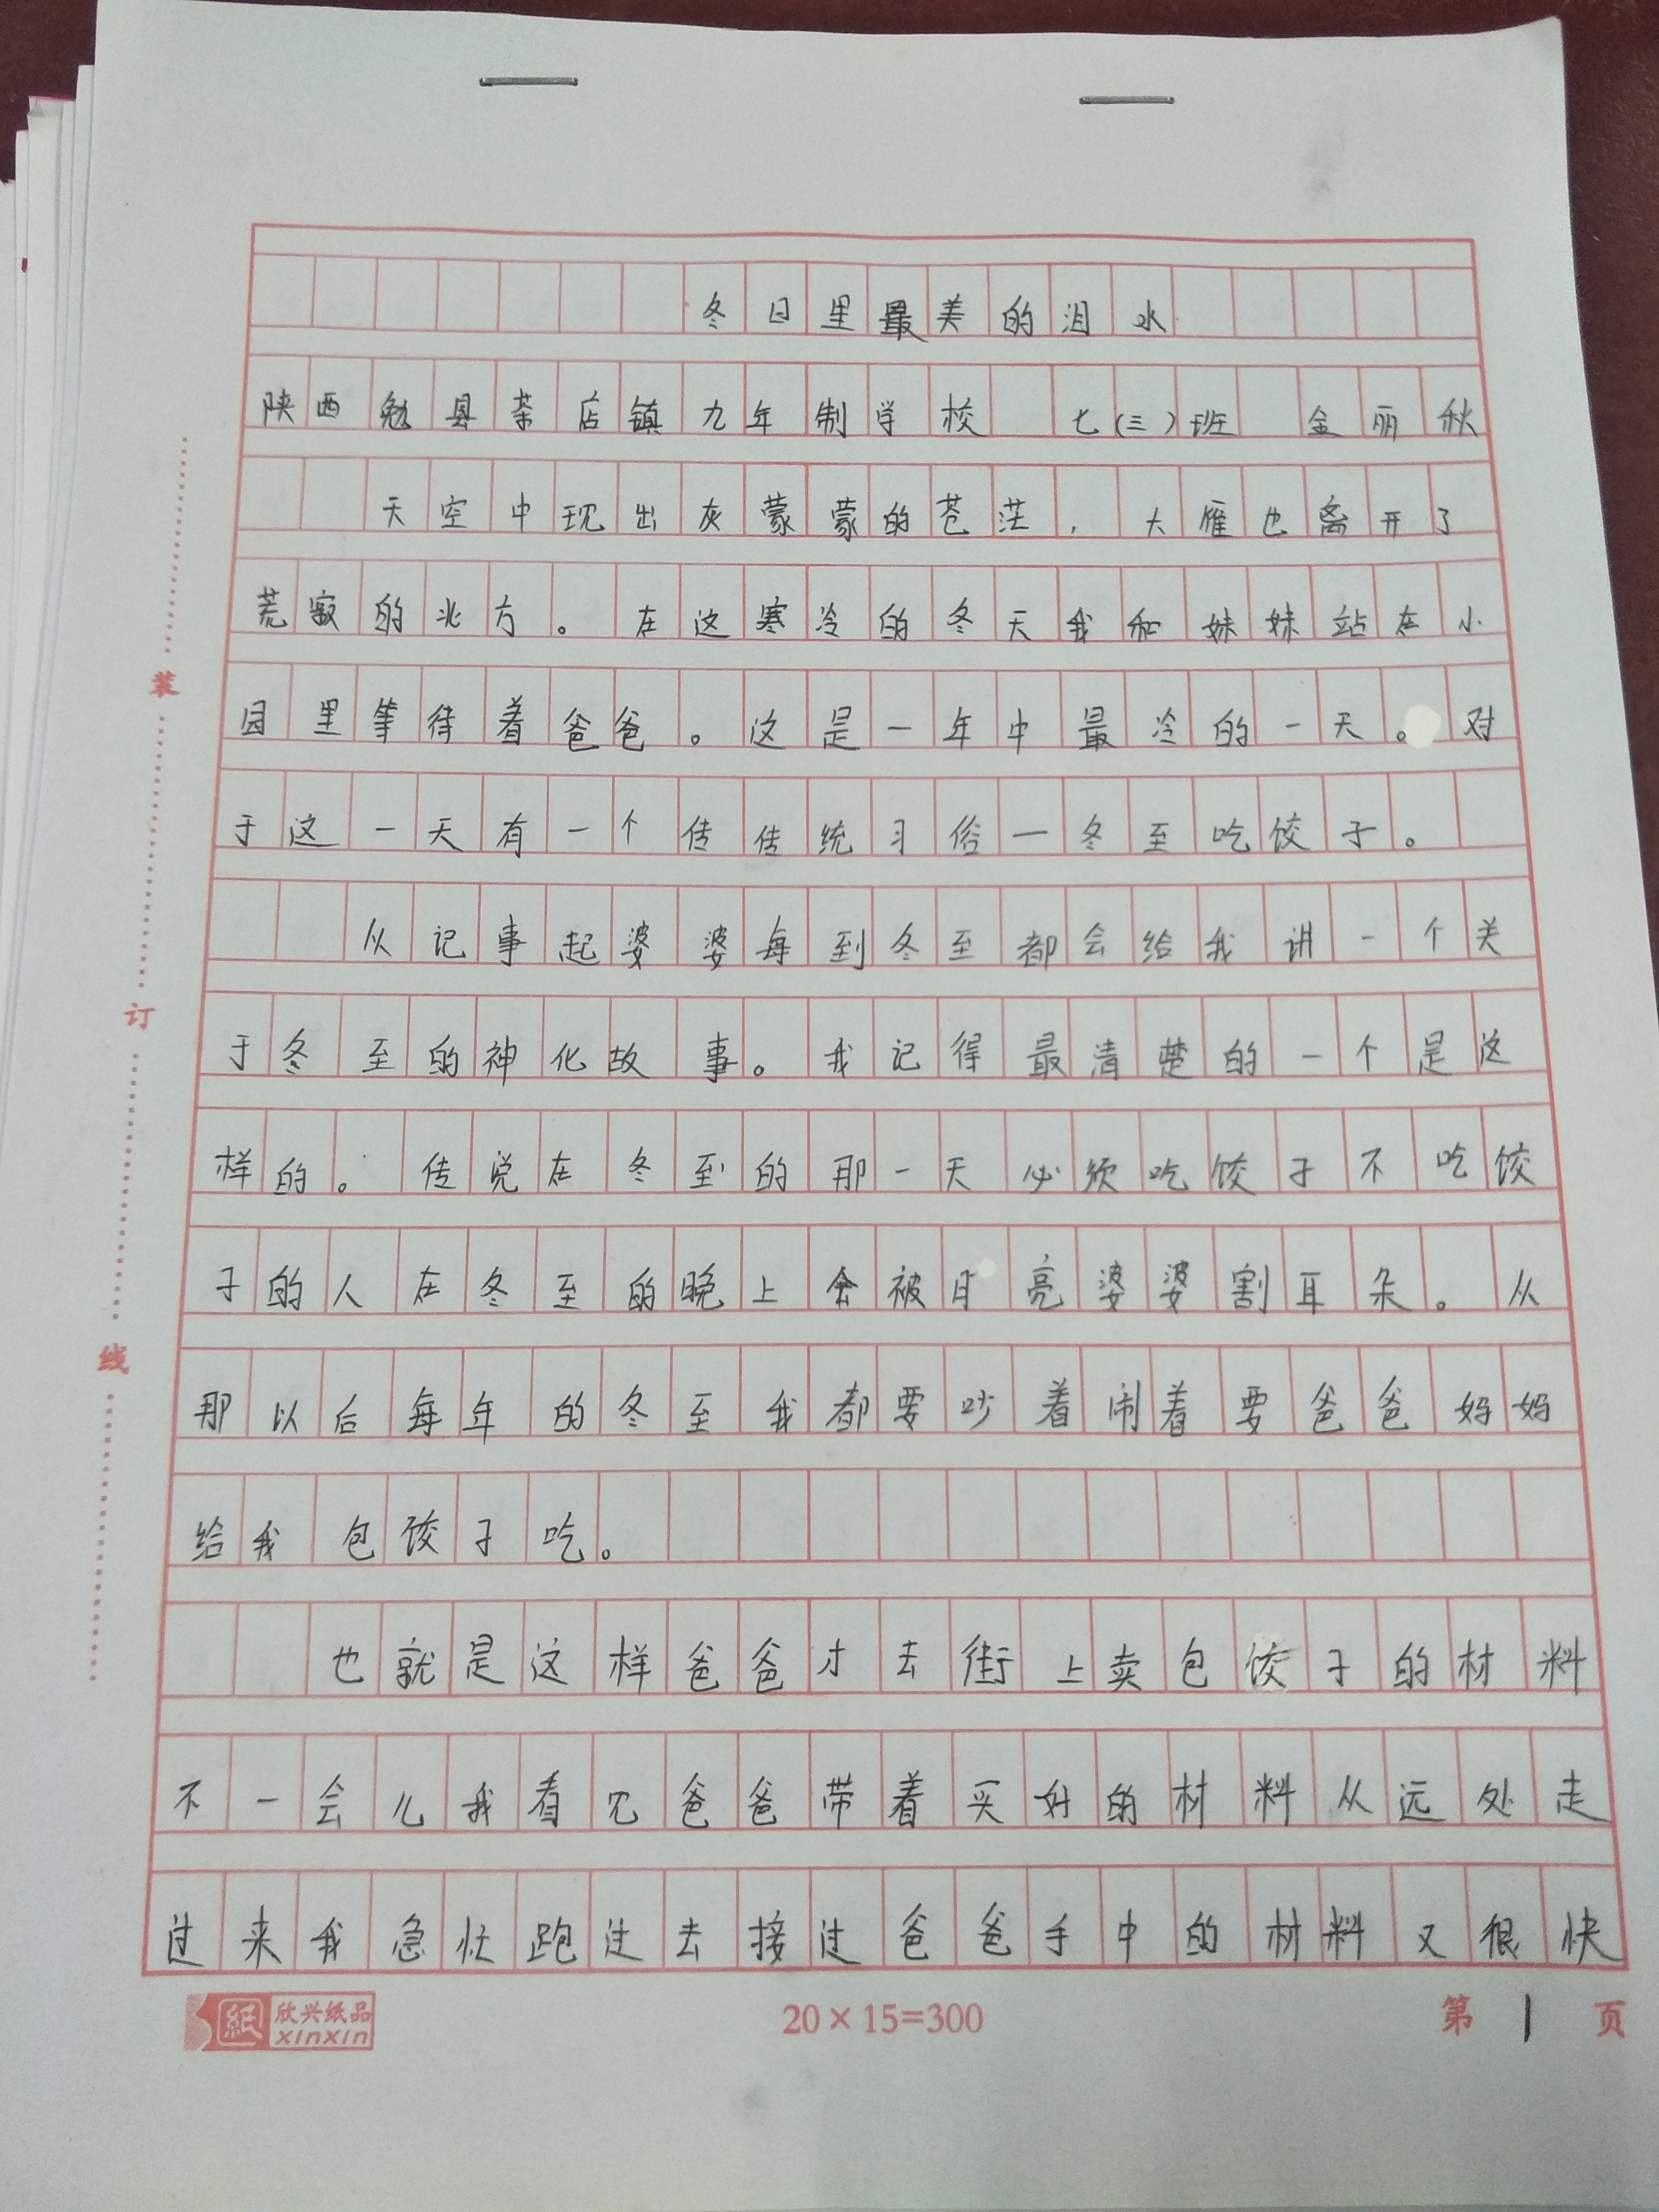 冬日里最美的泪水
陕西勉县茶店镇九年制学校 七(三)班 金丽秋
天空中现出灰蒙蒙的苍茫,大雁也离开了
荒寂的北方。在这寒冷的冬天我和妹妹站在小
园里等待着爸爸。这是一年中最冷的一天。对
于这一天有一个传传统习俗一冬至吃饺子。
从记事起婆婆每到冬至都会给我讲一个关
于冬至的神化故事。我记得最清楚的一个是这
样的。传说在冬至的那一天必须吃饺子不吃饺
子的人在冬至的晚上会被月亮婆婆割耳朵。从
那以后每年的冬至我都要吵着闹着要爸爸妈妈
给我包饺子吃。
也就是这样爸爸才去街上卖包饺子的材料
不一会儿我看见爸爸带着买好的材料从远处走
过来我急忙跑过去接过爸爸手中的材料又很快
装
订
线
欣兴纸品
xinxin
20×15=300
第 1 页